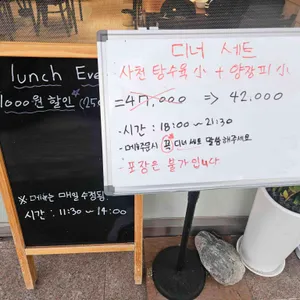 lunch Eve
1000원 할인
※ 메뉴는 매일 수정됨.
시간 : 11:30 ~ 14:00
디너 세트
사천 탕수육 小 + 양장피 小
= 47,000 => 42,000
· 시간 : 18:00 ~ 21:30
· 메뉴주문시 꼭 디너세트 말씀해주세요
· 포장은 불가입니다